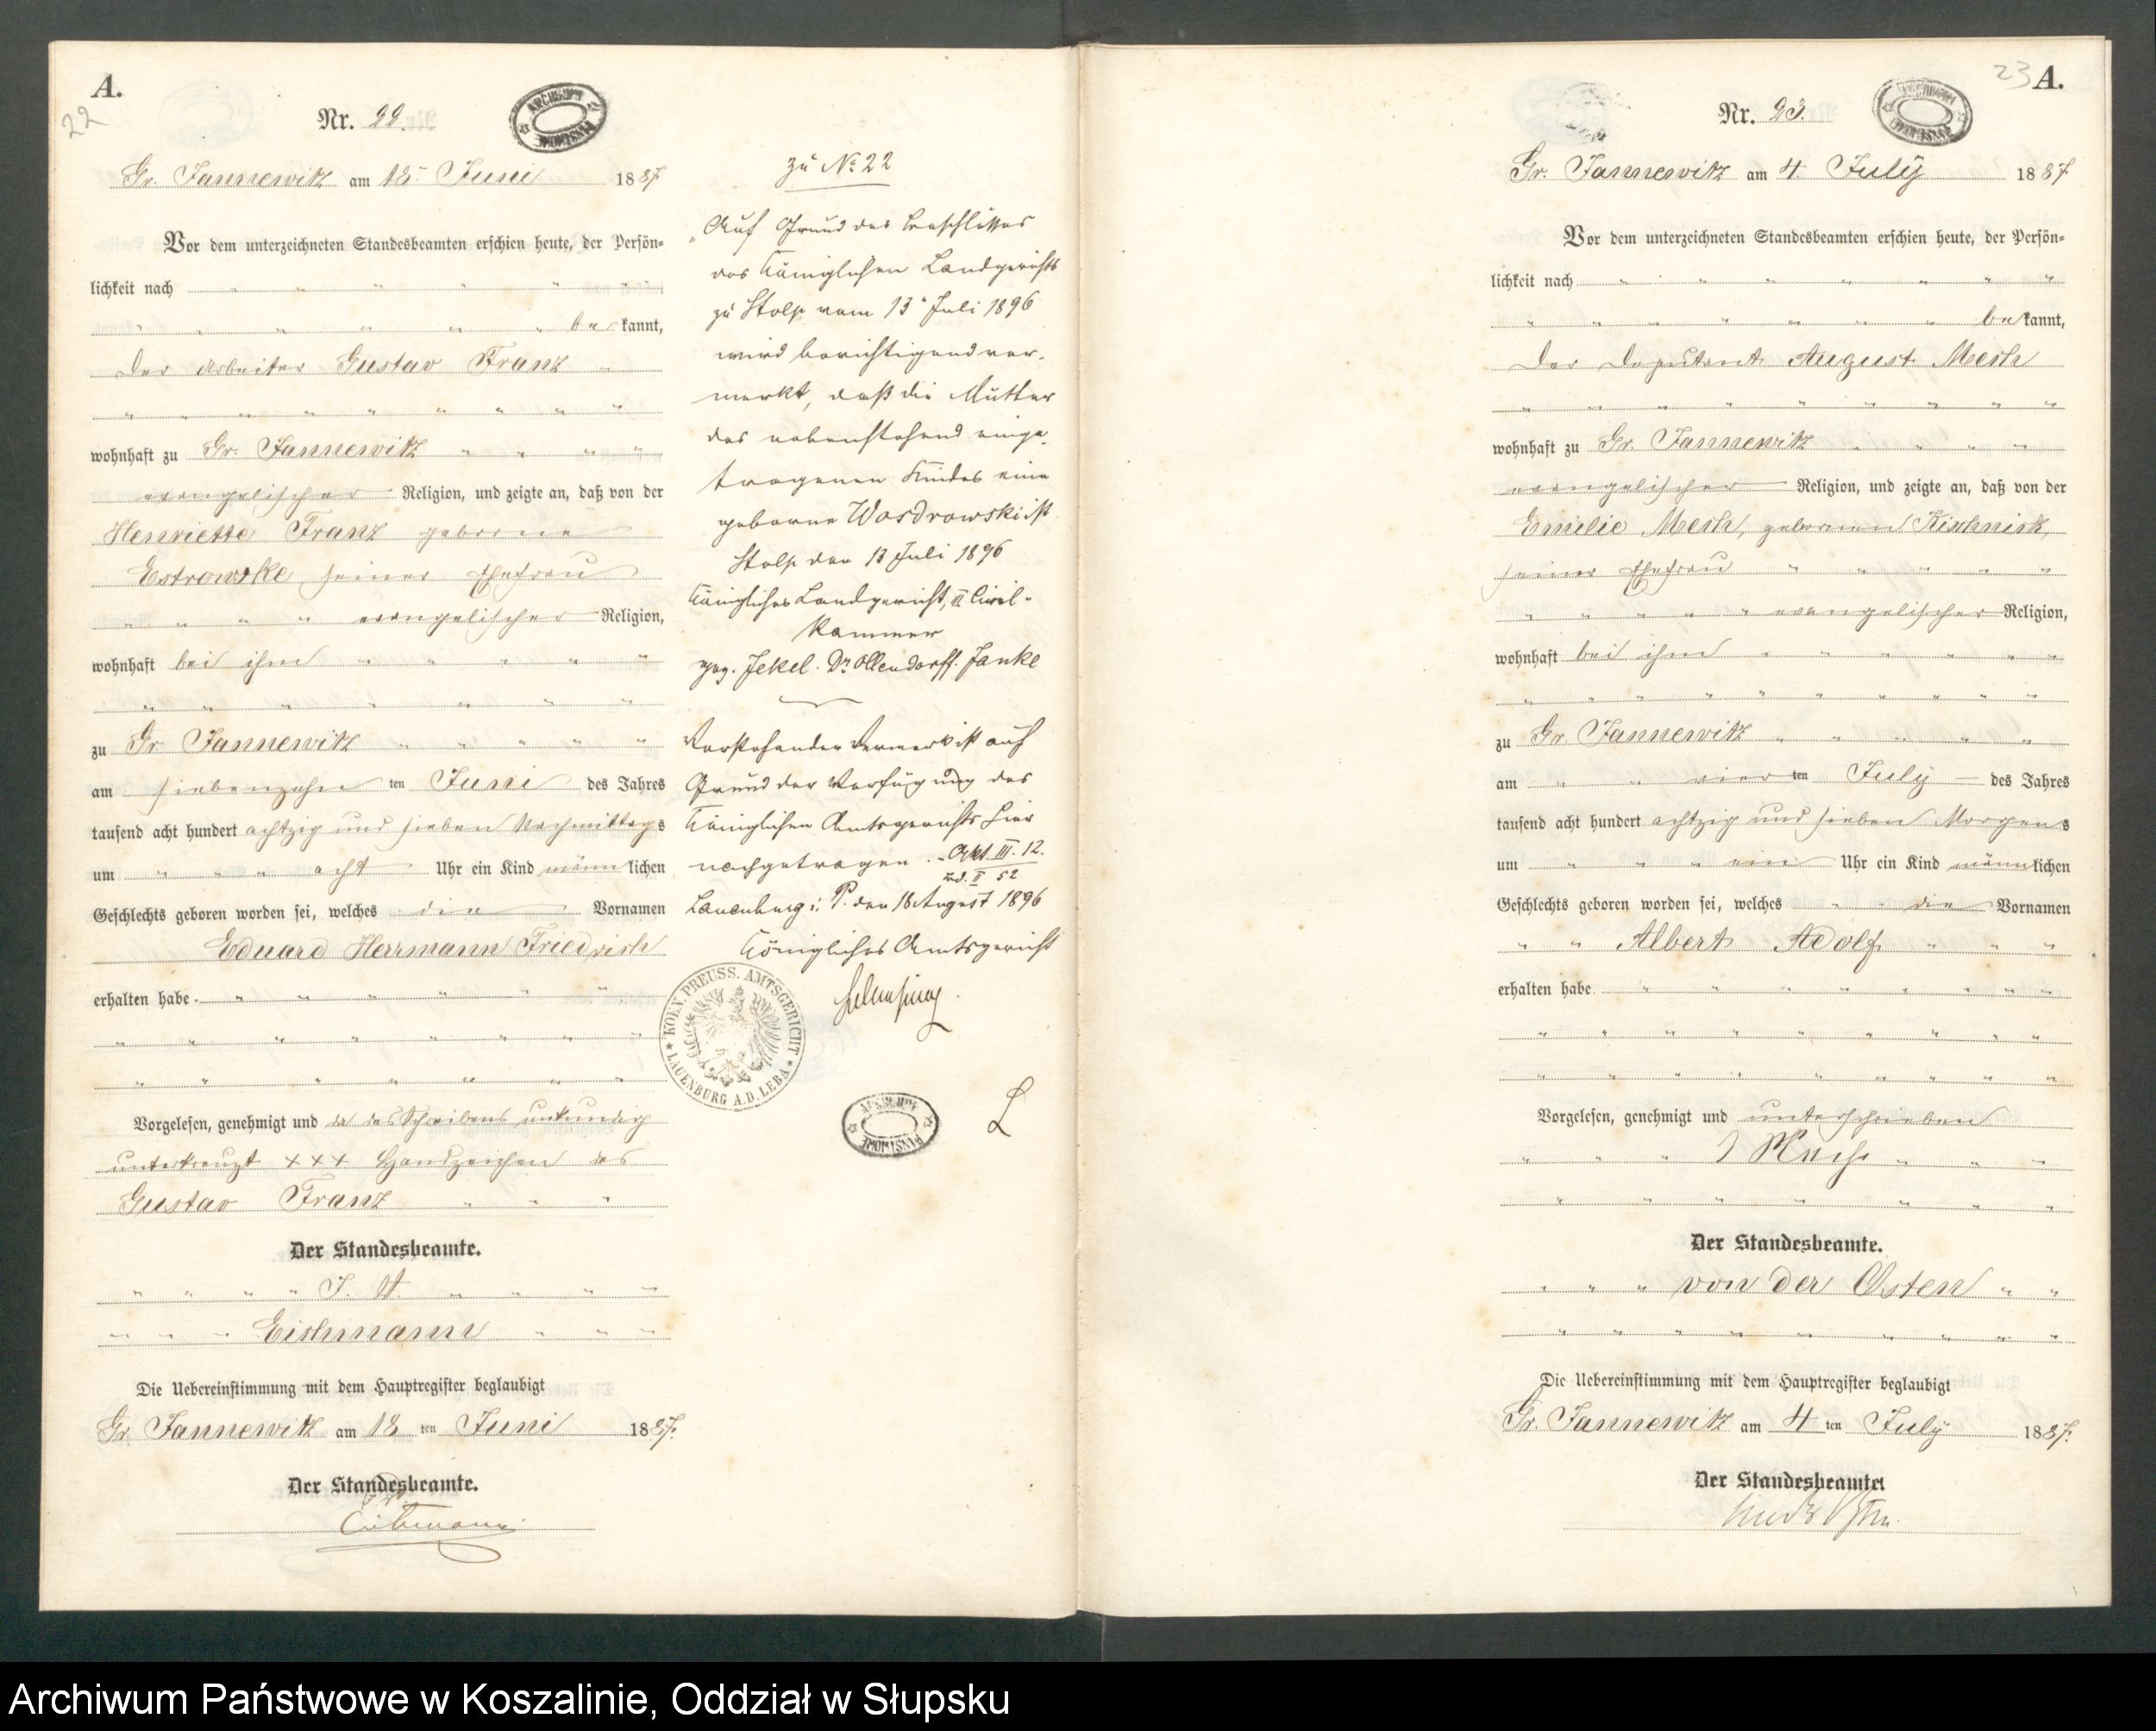 A.
22
Nr. 22.
Gr. Jannewitz am 18 Juni 1887
Vor dem unterzeichneten Standesbeamten erschien heute, der Persön=
lichkeit nach
be kannt,
der Arbeiter Gustav Franz
wohnhaft zu Gr. Jannewitz
evangelischer Religion, und zeigte an, daß von der
Henriette Franz geborne
Estrowske, seiner Ehefrau
evangelischer Religion,
wohnhaft bei ihm
zu Gr. Jannewitz
am siebenzehn ten Juni des Jahres
tausend acht hundert achtzig und sieben Nachmittags
um acht Uhr ein Kind männ lichen
Geschlechts geboren worden sei, welches die Vornamen
Eduard Herrmann Friedrich
erhalten habe.
Vorgelesen, genehmigt und da des Schreibens unkundig
unterkreuzt +++ Handzeichen des
Gustav Franz
Der Standesbeamte.
J. V.
Eichmann
Die Uebereinstimmung mit dem Hauptregister beglaubigt
Gr. Jannewitz am 18 ten Juni 1887.
Der Standesbeamte.
Eichmann
zu No 22
"Auf Grund des Beschlusses
des Königlichen Landgerichts
zu Stolp vom 13. Juli 1896
wird berichtigend ver-
merkt, daß die Mutter
des nebenstehend einge-
tragenen Kindes eine
geborne Wosdrowski ist.
Stolp den 13 Juli 1896
Königliches Landgericht, II Civil-
kammer
gez. Jekel. Dr Ollendorff. Janke
Vorstehender Vermerk ist auf
Grund der Verfügung des
Königlichen Amtsgerichts hier
nachgetragen. - Akt. III. 12.
II 52
Lauenburg i. P. den 18 August 1896
Königliches Amtsgericht
KOEN. PREUSS. AMTSGERICHT
LAUENBURG A.D. LEBA
23 A.
Nr. 23.
Gr. Jannewitz am 4 July 1887
Vor dem unterzeichneten Standesbeamten erschien heute, der Persön=
lichkeit nach
be kannt,
der Deputant August Mech
wohnhaft zu Gr. Jannewitz
evangelischer Religion, und zeigte an, daß von der
Emilie Mech, gebornen Kischnick,
seiner Ehefrau
evangelischer Religion,
wohnhaft bei ihm
zu Gr. Jannewitz
am vier ten July des Jahres
tausend acht hundert achtzig und sieben Morgens
um ein Uhr ein Kind männ lichen
Geschlechts geboren worden sei, welches die Vornamen
Albert Adolf
erhalten habe.
Vorgelesen, genehmigt und unterschrieben
Der Standesbeamte.
von der Osten
Die Uebereinstimmung mit dem Hauptregister beglaubigt
Gr. Jannewitz am 4 ten July 1887.
Der Standesbeamte.
Archiwum Państwowe w Koszalinie, Oddział w Słupsku